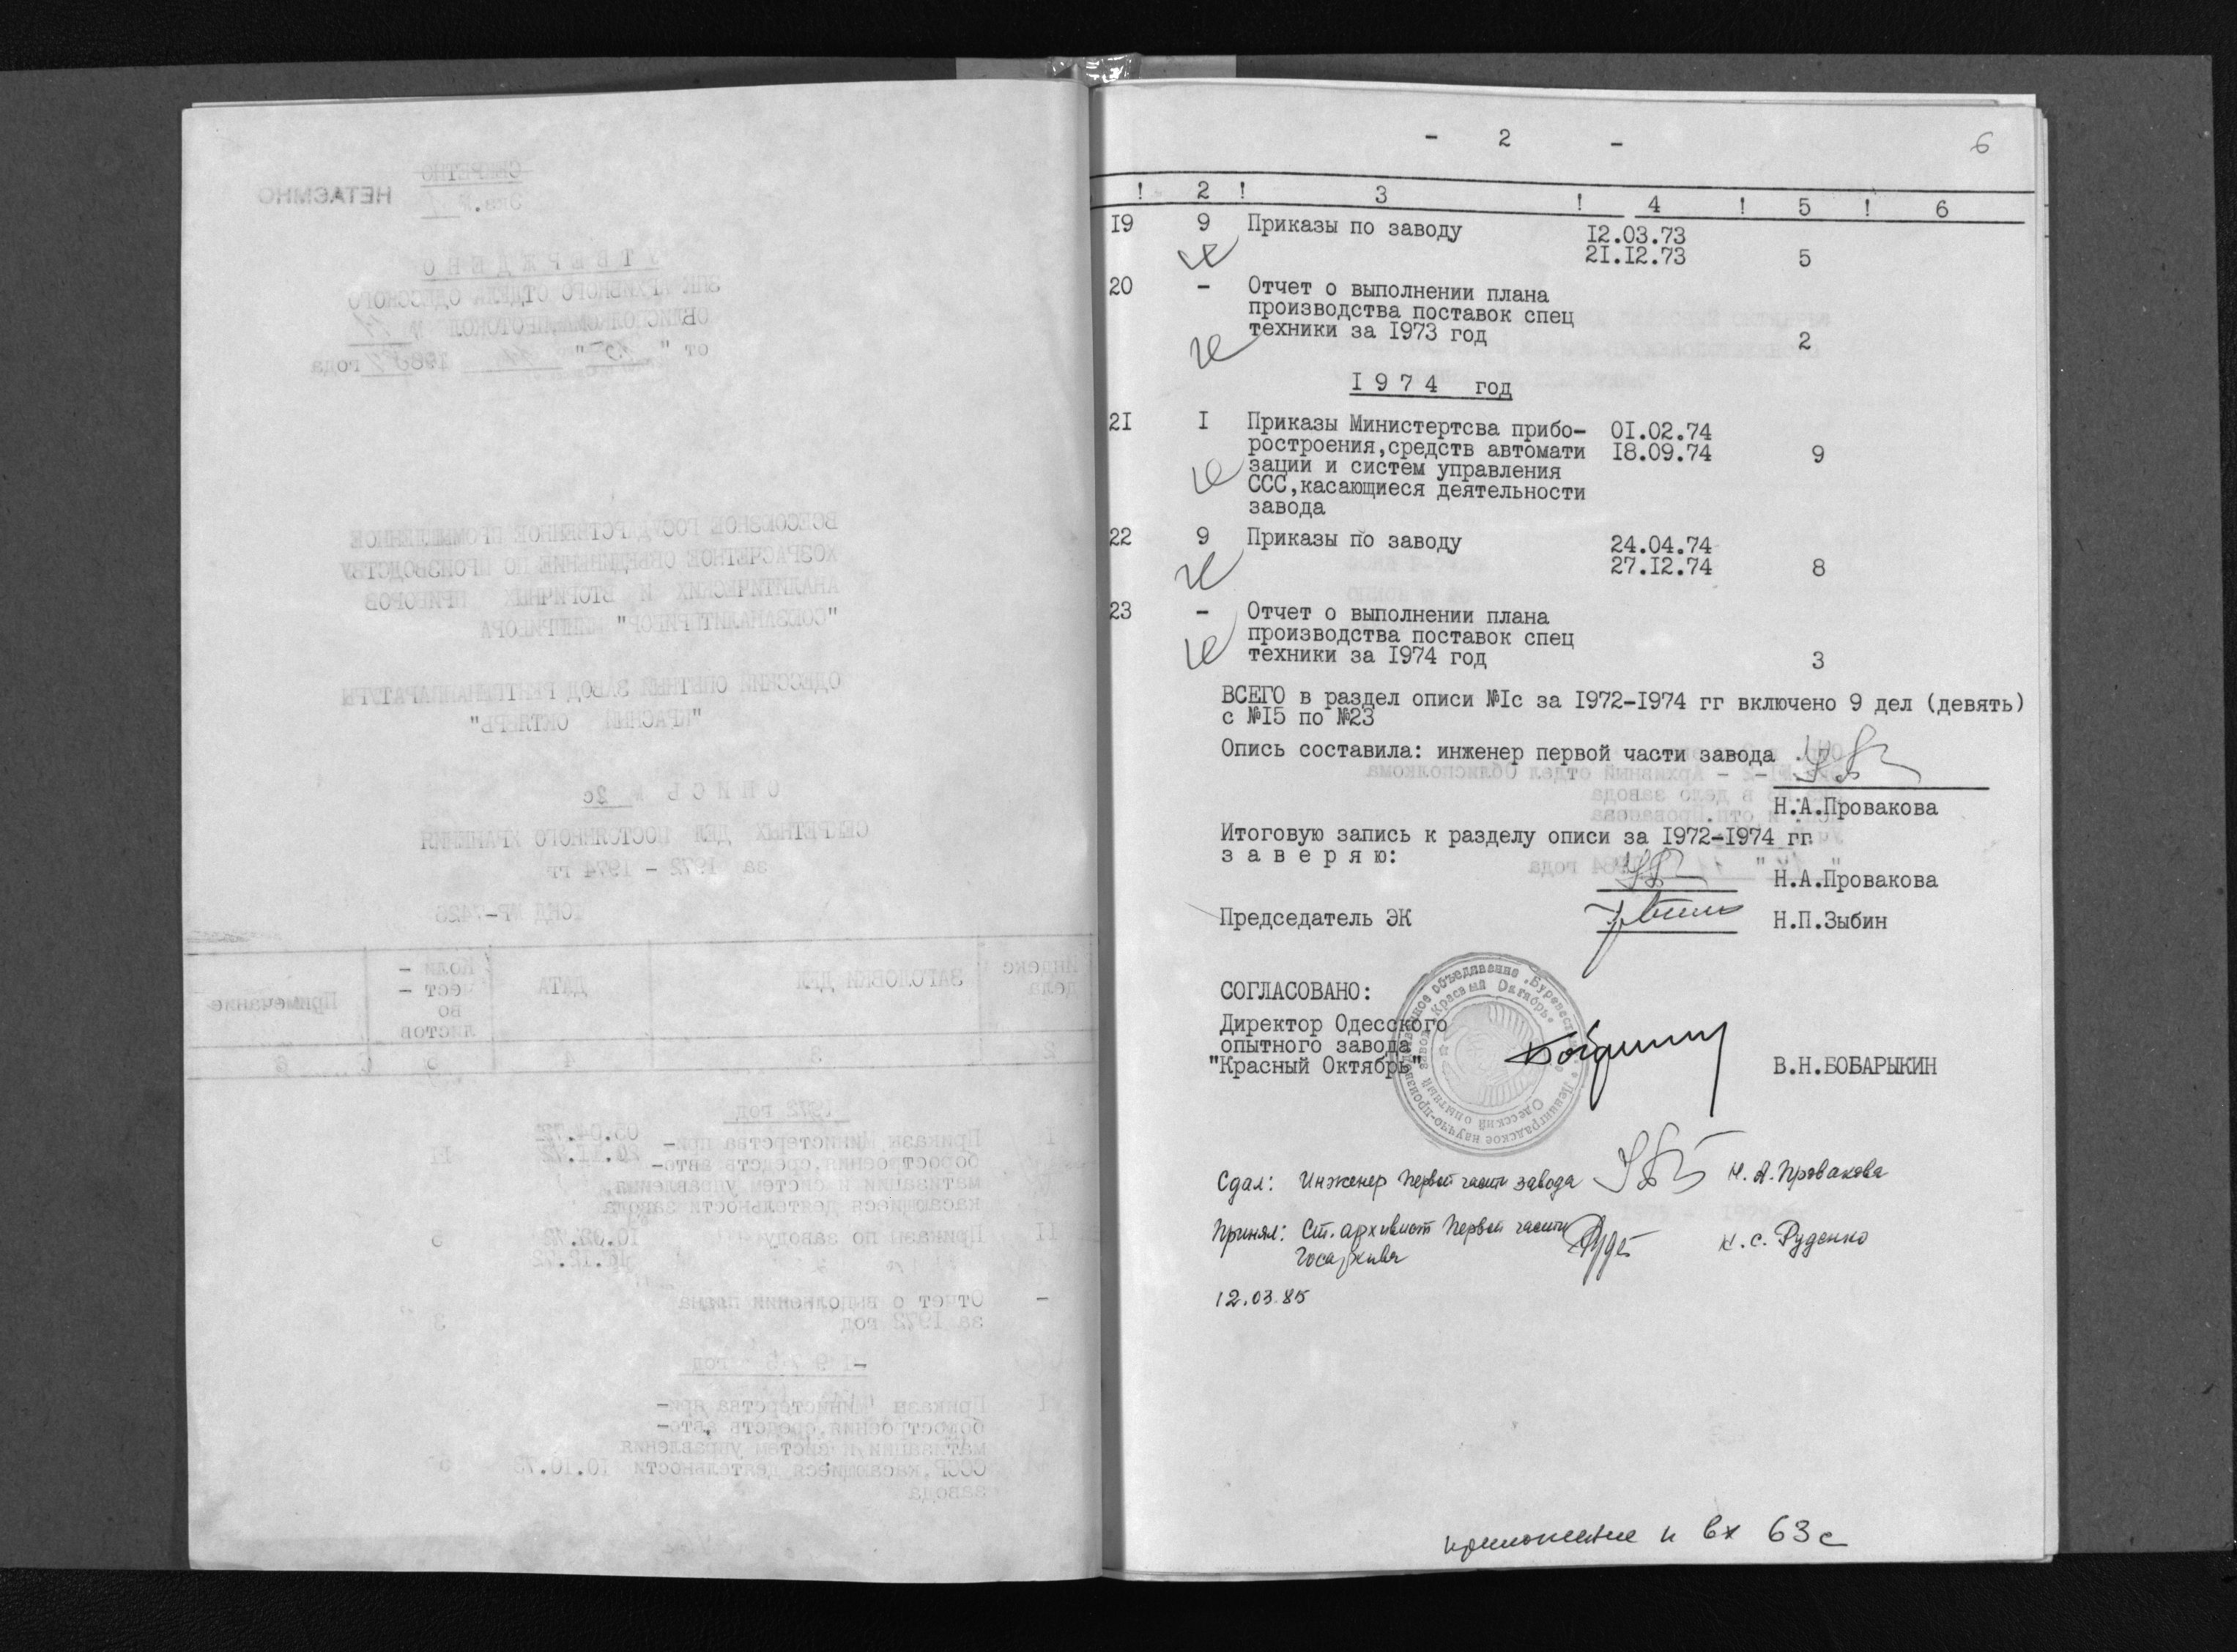 - 2 -
6
! 2 ! 3 ! 4 ! 5 ! 6
I9 9 Приказы по заводу I2.03.73
2I.I2.73 5
20 - Отчет о выполнении плана
производства поставок спец
техники за I973 год 2
I 9 7 4 год
2I I Приказы Министертсва прибо- 0I.02.74
ростроения,средств автомати I8.09.74 9
зации и систем управления
ССС,касающиеся деятельности
завода
22 9 Приказы по заводу 24.04.74
27.I2.74 8
23 - Отчет о выполнении плана
производства поставок спец
техники за I974 год 3
ВСЕГО в раздел описи №Iс за I972-I974 гг включено 9 дел (девять)
с №I5 по №23
Опись составила: инженер первой части завода
Н.А.Провакова
Итоговую запись к разделу описи за I972-I974 гг
з а в е р я ю:
Н.А.Провакова
Председатель ЭК Н.П.Зыбин
СОГЛАСОВАНО:
Директор Одесского
опытного завода
"Красный Октябрь" В.Н.БОБАРЫКИН
Ленинградское научно-производственное объединение „Буревестник"
Одесский опытный завод „Красный Октябрь"
Сдал: Инженер Первой части завода Н.А.Провакова
Принял: Ст. архивист Первой части Н.С. Руденко
Госархива
12.03.85
приложение к вх 63с